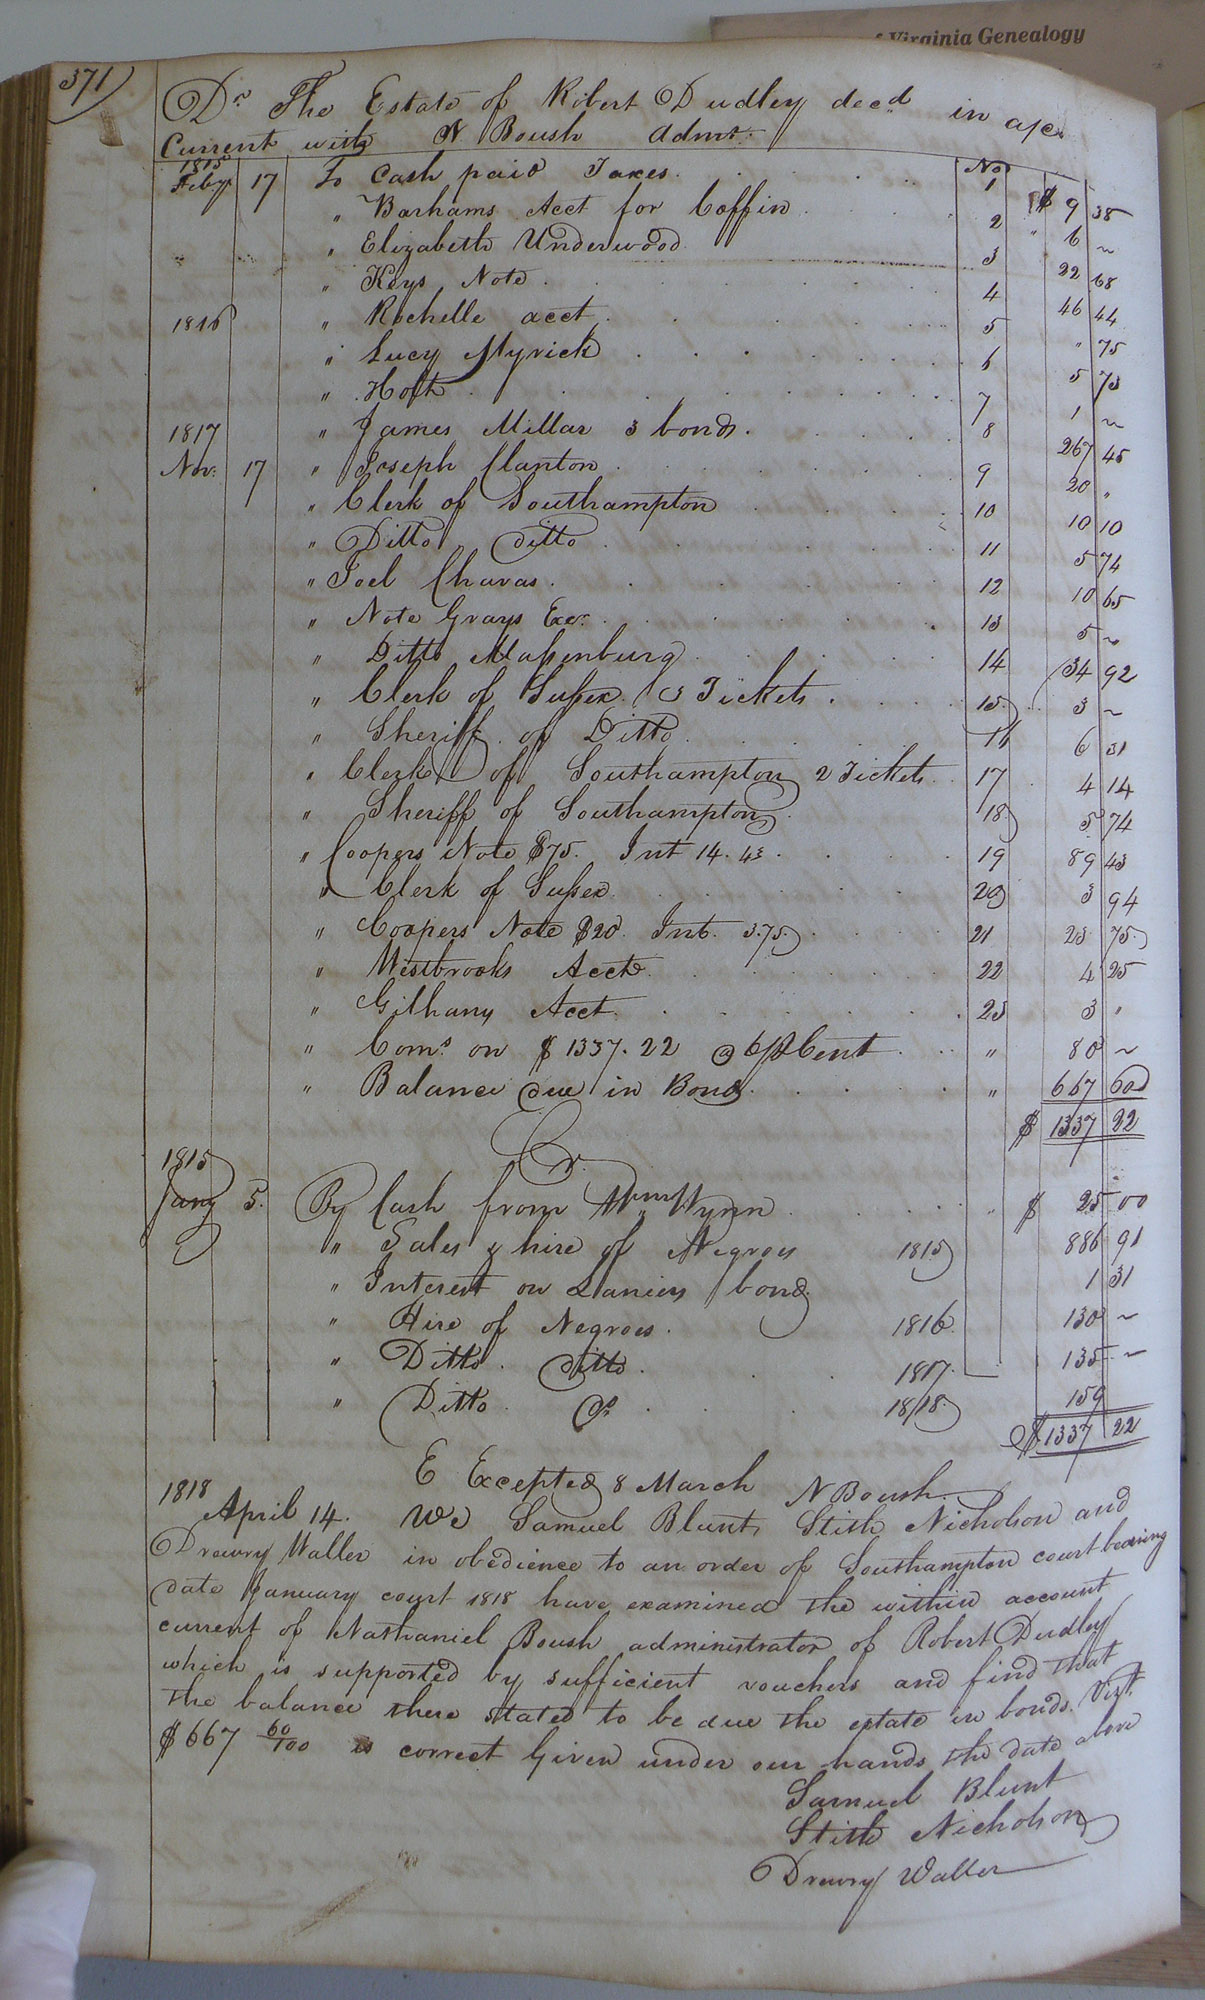 of Virginia Genealogy
371
Dr The Estate of Robert Dudley decd in a/c
Current with N Boush Admr.
1815
Feby 17 To Cash paid Taxes No 1 $ 9 38
" Barhams Acct for Coffin 2 " 6 ~
" Elizabeth Underwood 3 22 68
" Keys Note 4 46 44
1816 " Rochelle acct 5 " 75
" Lucy Myrick 6 5 73
" Holt 7 1 ~
1817 " James Millar 3 bonds 8 267 45
Nov: 17 " Joseph Clanton 9 20 "
" Clerk of Southampton 10 10 10
" Ditto ditto 11 5 74
" Joel Chavas 12 10 65
" Note Grays Exr. 13 5 ~
" Ditto Massenburg 14 34 92
" Clerk of Sussex 3 Tickets 15 3 ~
" Sheriff of Ditto 16 6 31
" Clerk of Southampton 2 Tickets 17 4 14
" Sheriff of Southampton 18 5 74
" Coopers Note $75. Int 14.43 19 89 43
" Clerk of Sussex 20 3 94
" Coopers Note $20 Int. 3.75 21 23 75
" Westbrooks Acct 22 4 25
" Gilhany Acct 23 3 "
" Coms on $1337.22 @ 6 p Cent " 80 ~
" Balance due in Bond " 667 60
$ 1337 22
Cr
1815
Jany 5. By Cash from Wm Wynn $ 25 00
" Sales & hire of Negroes 1815 886 91
" Interest on Laniers bond 1 31
" Hire of Negroes 1816 130 ~
" Ditto ditto 1817 135 ~
" Ditto do 1818 159
$1337 22
E Excepted 8 March N Boush
1818
April 14. We Samuel Blunt, Stith Nicholson and
Drewry Waller in obedience to an order of Southampton court bearing
date January court 1818 have examined the within account
current of Nathaniel Boush administrator of Robert Dudley
which is supported by sufficient vouchers and find that
the balance there stated to be due the estate in bonds Vizt.
$667 60/100 is correct Given under our hands the date above
Samuel Blunt
Stith Nicholson
Drewry Waller